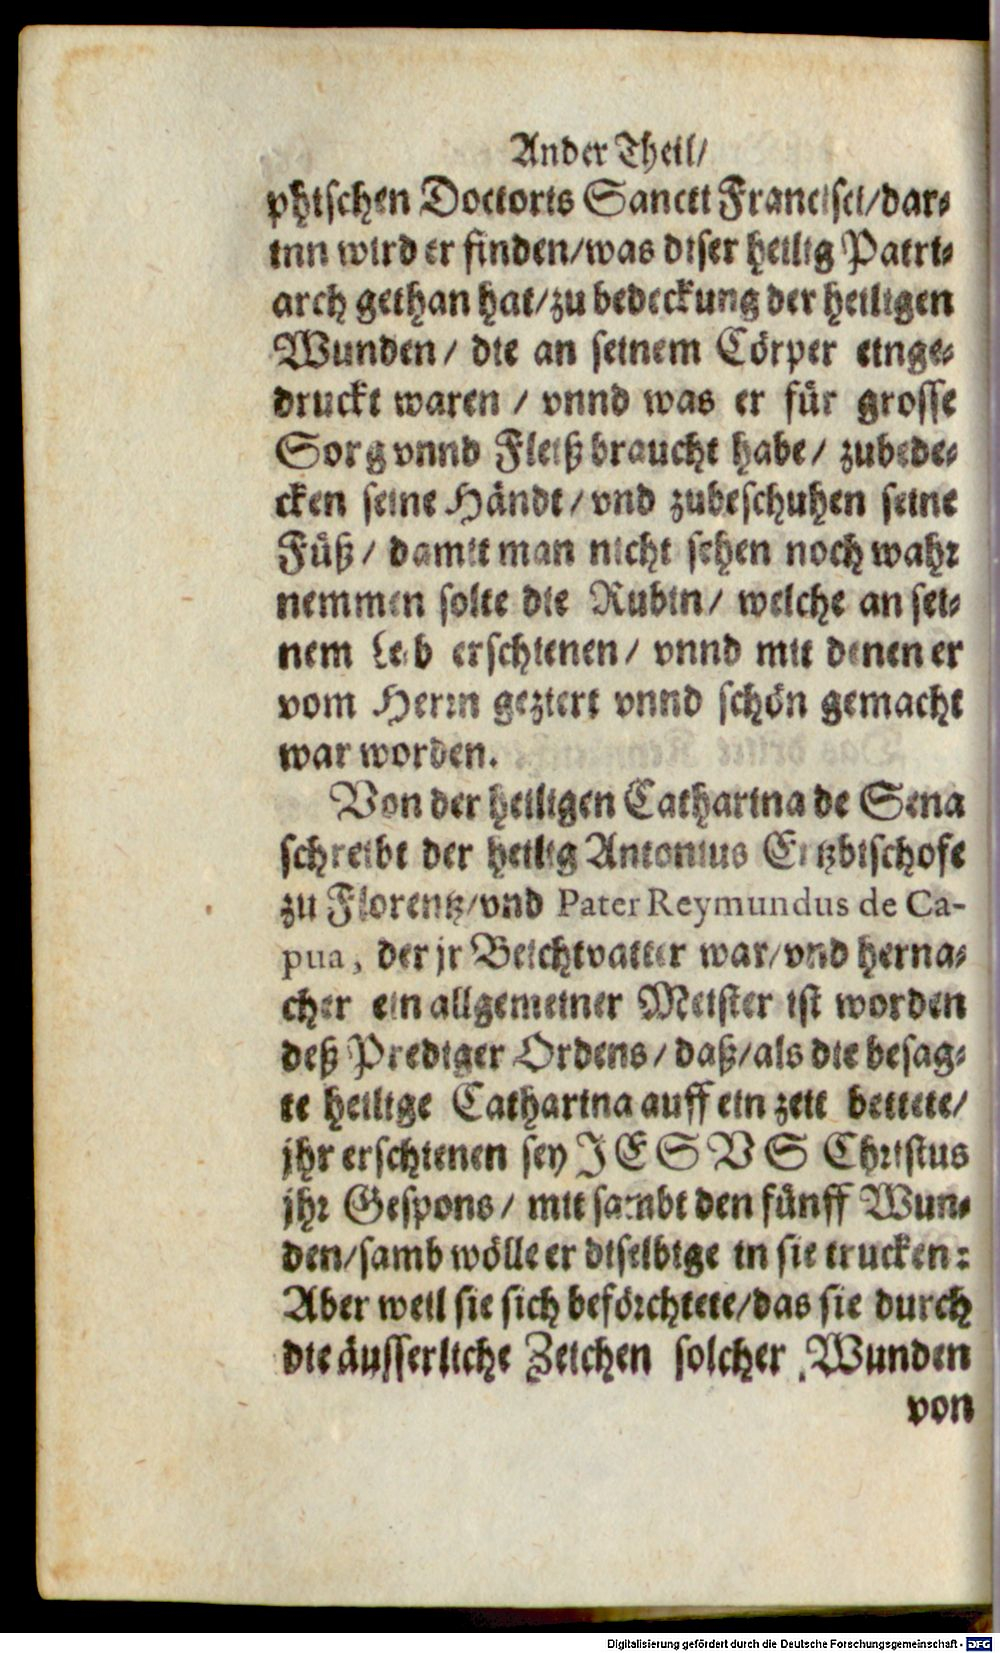 Ander Theil/
phischen Doctoris Sancti Francisci/dar⸗
inn wird er finden/was diser heilig Patri⸗
arch gethan hat/zu bedeckung der heiligen
Wunden/ die an seinem Cörper einge⸗
druckt waren / vnnd was er für grosse
Sorg vnnd Fleiß braucht habe/ zubede⸗
cken seine Händt/ vnd zubeschuhen seine
Füß/ damit man nicht sehen noch wahr
nemmen solte die Rubin/ welche an sei⸗
nem Leib erschienen/ vnnd mit denen er
vom Herrn geziert vnnd schön gemacht
war worden.
Von der heiligen Catharina de Sena
schreibt der heilig Antonius Ertzbischofe
zu Florentz/vnd Pater Reymundus de Ca-
pua, der jr Beichtvatter war/vnd herna⸗
cher ein allgemeiner Meister ist worden
deß Prediger Ordens/ daß/als die besag⸗
te heilige Catharina auff ein zeit bettete/
jhr erschienen sey JESVS Christus
jhr Gespons/ mit sambt den fünff Wun⸗
den/samb wölle er diselbige in sie trucken:
Aber weil sie sich beförchtete/das sie durch
die äusserliche Zeichen solcher Wunden
von
Digitalisierung gefördert durch die Deutsche Forschungsgemeinschaft - DFG